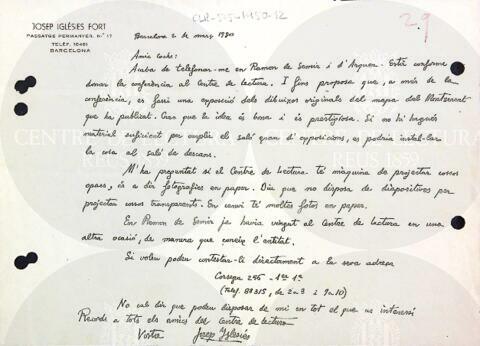 JOSEP IGLÉSIES FORT
PASSATGE PERMANYER, Nº 17
TELÈF. 10461
BARCELONA
29
Barcelona 2 de març 1950
Amic
Acaba de telefonar-me en Ramon de Semir i d'Arquer. Està conforme
donar la conferència al Centre de Lectura. I fins proposa que, a més de la
conferència, es faci una exposició dels dibuixos originals del mapa del Montserrat
que ha publicat. Crec que la idea és bona i és prestigiosa. Si no hi hagués
material suficient per omplir el saló gran d'exposicions, es podria instal·lar
la cosa al saló de descans.
M'ha preguntat si el Centre de Lectura té màquina de projectar cossos
opacs, és a dir fotografies en paper. Diu que no disposa de diapositives per
projectar cossos transparents. En canvi té moltes fotos en paper.
En Ramon de Semir ja havia vingut al Centre de Lectura en una
altra ocasió, de manera que coneix l'entitat.
Si voleu podeu contestar-li directament a la seva adreça
Còrsega 296 - 1er 1a
(Telèf. 84315, de 2 a 3 i 9 a 10)
No cal dir que podeu disposar de mi en tot el que us interessi
Records a tots els amics del Centre de Lectura
Vostre Josep Iglésies
CENTRE DE LECTURA
REUS 1859